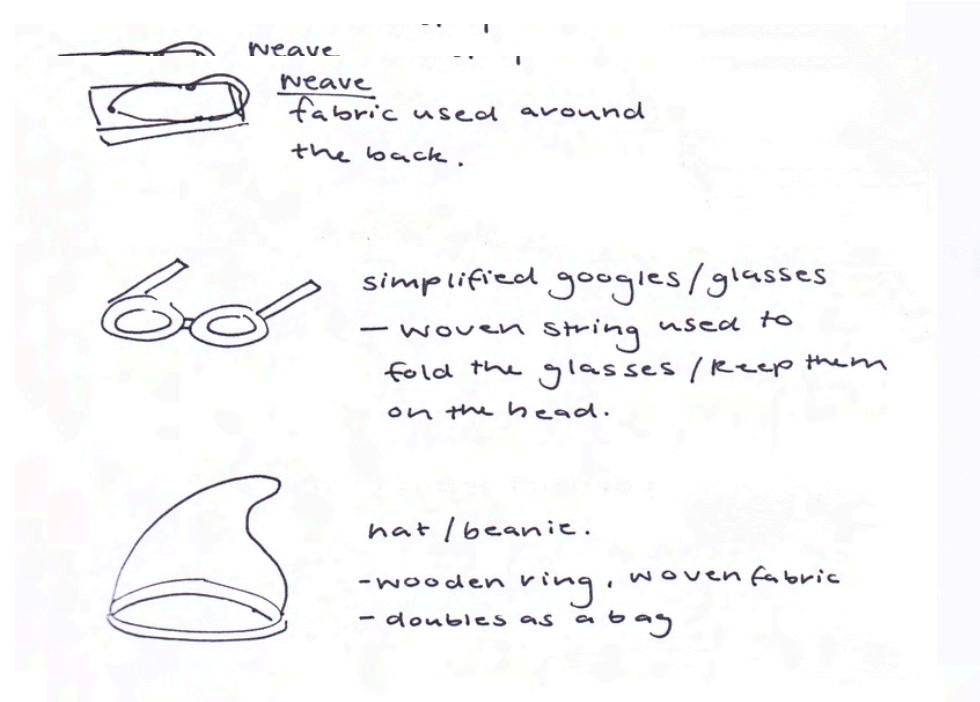 weave
weave
fabric used around
the back.
simplified googles/glasses
- woven string used to
fold the glasses/keep them
on the head.
hat/beanie.
- wooden ring, woven fabric
- doubles as a bag